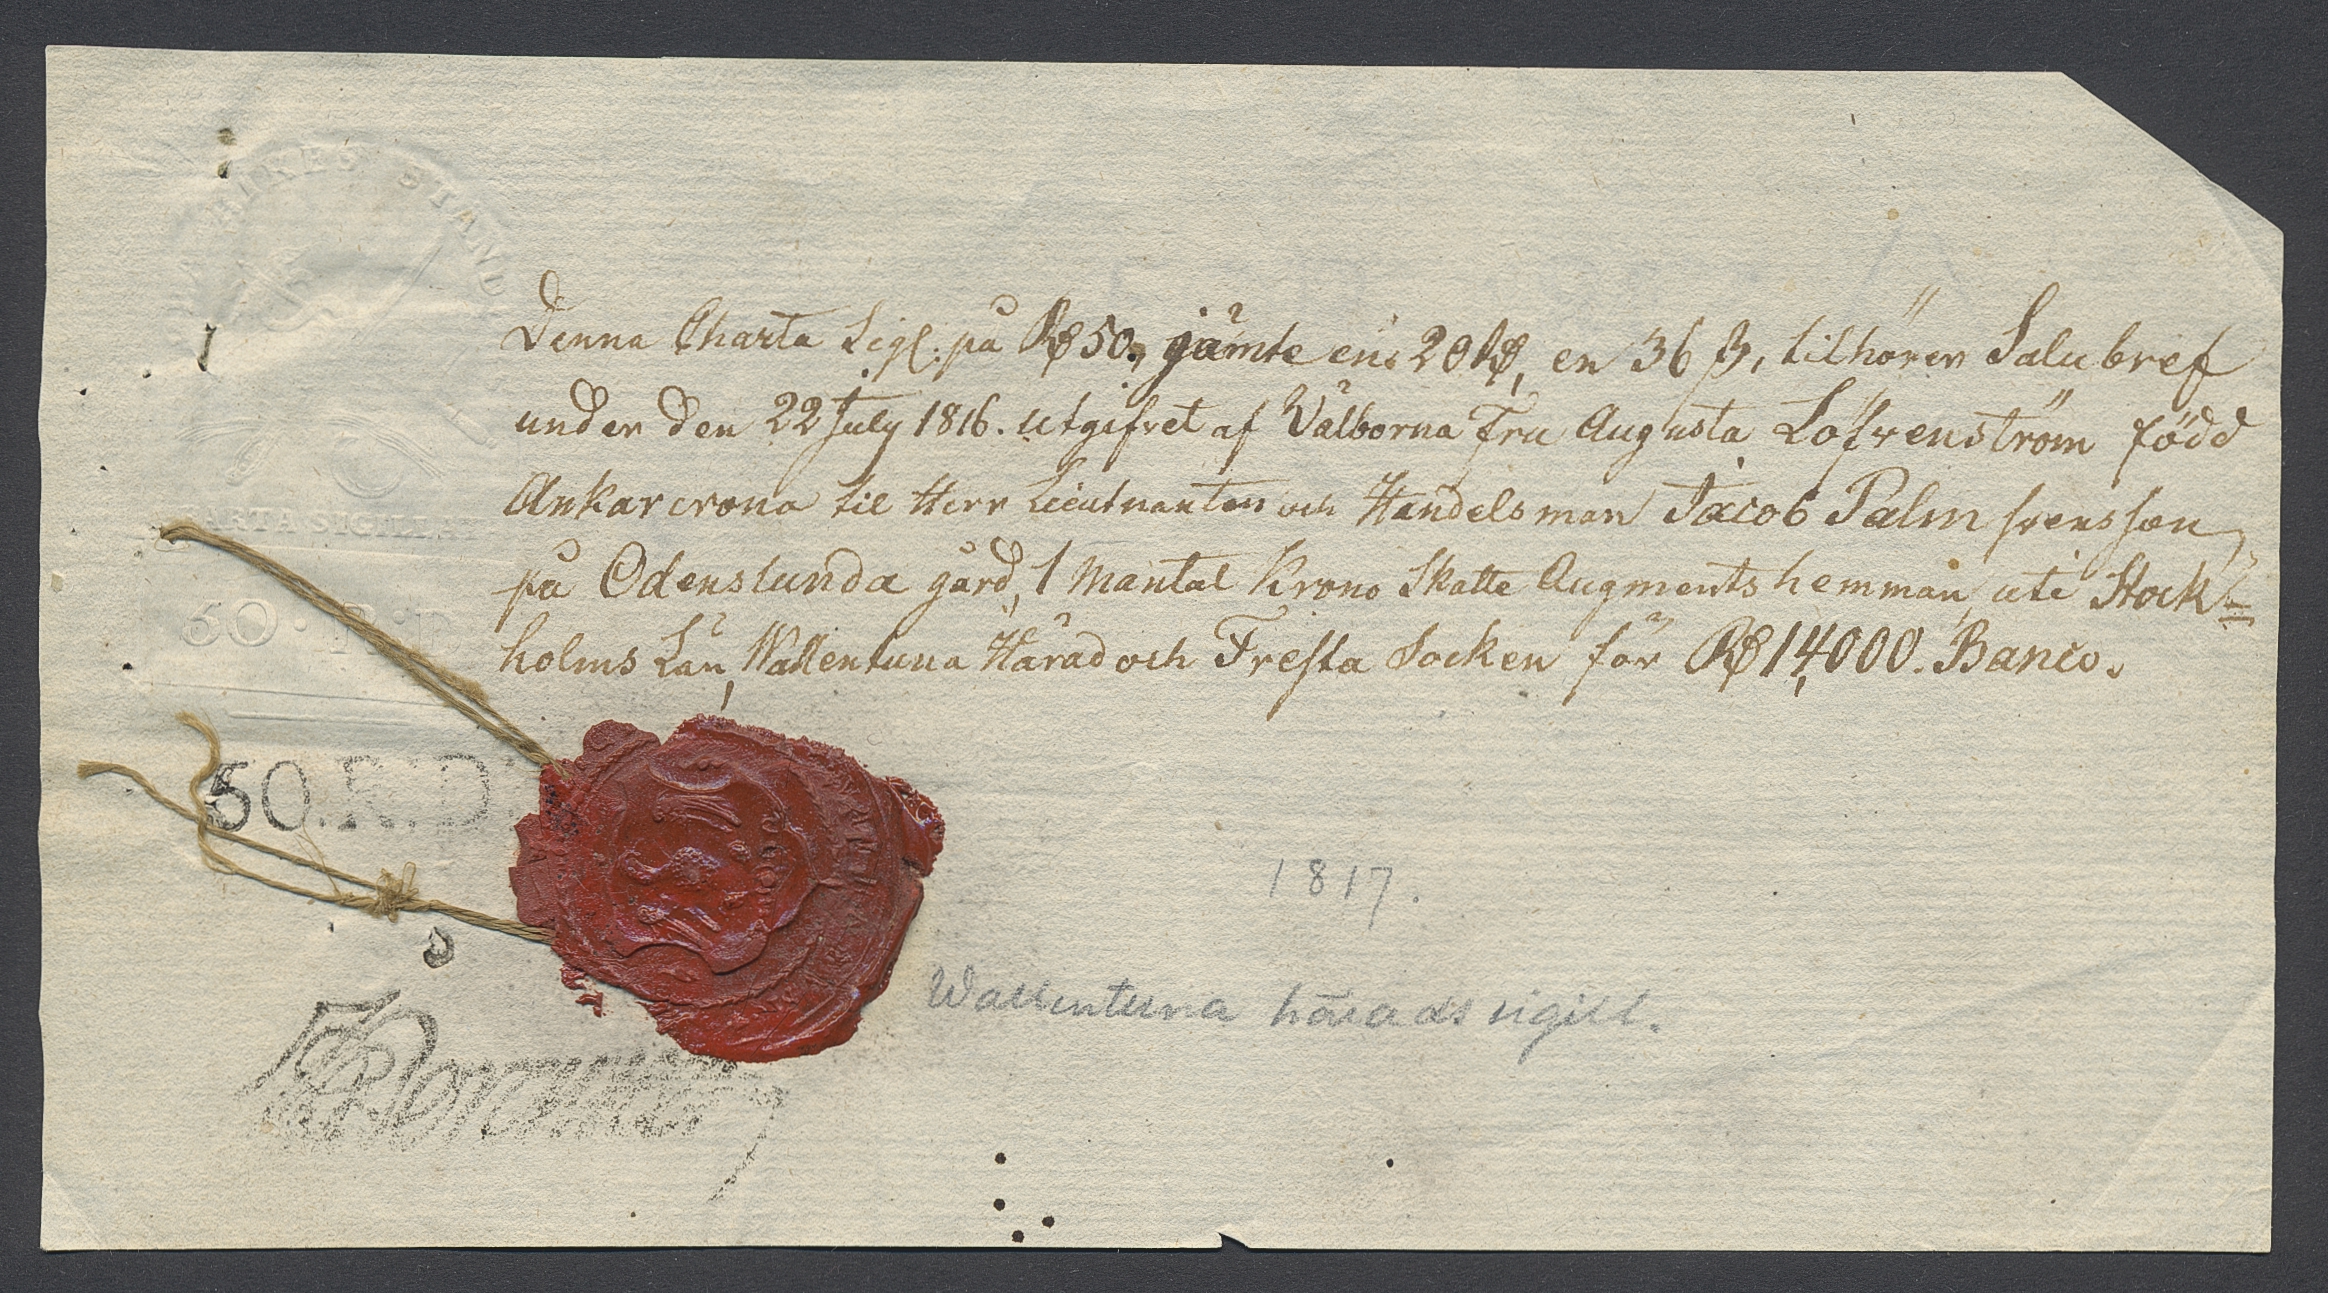 RIKES STÄND
Denna Charta Sigl: på Rd 50., jämte en 20 Rd, en 36 ß, tilhörer Salu bref
under den 22 July 1816. utgifvet af Välborna Fru Augusta Löfvenström född
Ankarcrona til Herr Lieutnanten och Handelsman Jacob Palm svensson,
på Odenslunda gård, 1 Mantal Krono Skatte Augments hemman, uti Stock=
holms Län, Wallentuna Härad och Fresta Socken för Rd 14,000. Banco.
CHARTA SIGILLATA
50. R. D.
50. R. D.
1817.
Wallentuna härads sigill.